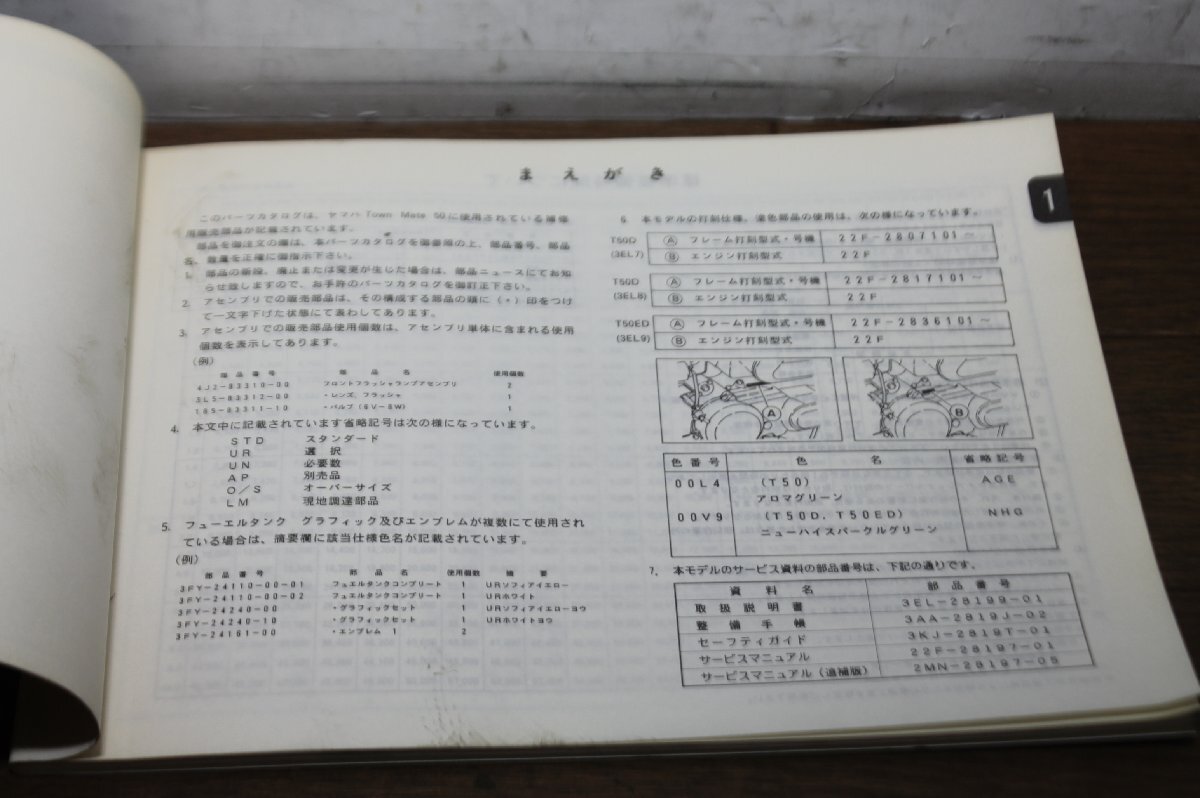 まえがき
1
このパーツカタログは、ヤマハTown Mate 50に使用されている補修
用販売部品が記載されています。
部品を御注文の際は、本パーツカタログを御参照の上、部品番号、部品
名、数量を正確に御指示下さい。
1. 部品の新設、廃止または変更が生じた場合は、部品ニュースにてお知
らせ致しますので、お手許のパーツカタログを御訂正下さい。
2. アセンブリでの販売部品は、その構成する部品の頭に(・)印をつけ
て一文字下げた状態にて表わしてあります。
3. アセンブリでの販売部品使用個数は、アセンブリ単体に含まれる使用
個数を表示してあります。
(例)
部品番号 部品名 使用個数
4J2-83310-00 フロントフラッシャランプアセンブリ 2
3L5-83312-00 ・レンズ、フラッシャ 1
185-83311-10 ・バルブ(6V-8W) 1
4. 本文中に記載されています省略記号は次の様になっています。
STD スタンダード
UR 選択
UN 必要数
AP 別売品
O/S オーバーサイズ
LM 現地調達部品
5. フューエルタンク グラフィック及びエンブレムが複数にて使用され
ている場合は、摘要欄に該当仕様色名が記載されています。
(例)
部品番号 部品名 使用個数 摘要
3FY-24110-00-01 フュエルタンクコンプリート 1 URソフィアイエロー
3FY-24110-00-02 フュエルタンクコンプリート 1 URホワイト
3FY-24240-00 ・グラフィックセット 1 URソフィアイエローヨウ
3FY-24240-10 ・グラフィックセット 1 URホワイトヨウ
3FY-24161-00 ・エンブレム 1 2
6. 本モデルの打刻仕様、塗色部品の使用は、次の様になっています。
T50D Ⓐ フレーム打刻型式・号機 22F-2807101~
(3EL7) Ⓑ エンジン打刻型式 22F
T50D Ⓐ フレーム打刻型式・号機 22F-2817101~
(3EL8) Ⓑ エンジン打刻型式 22F
T50ED Ⓐ フレーム打刻型式・号機 22F-2836101~
(3EL9) Ⓑ エンジン打刻型式 22F
Ⓐ
Ⓑ
色番号 色名 省略記号
00L4 (T50) AGE
アロマグリーン
00V9 (T50D、T50ED) NHG
ニューハイスパークルグリーン
7. 本モデルのサービス資料の部品番号は、下記の通りです。
資料名 部品番号
取扱説明書 3EL-28199-01
整備手帳 3AA-2819J-02
セーフティガイド 3KJ-2819T-01
サービスマニュアル 22F-28197-01
サービスマニュアル(追補版) 2MN-28197-05